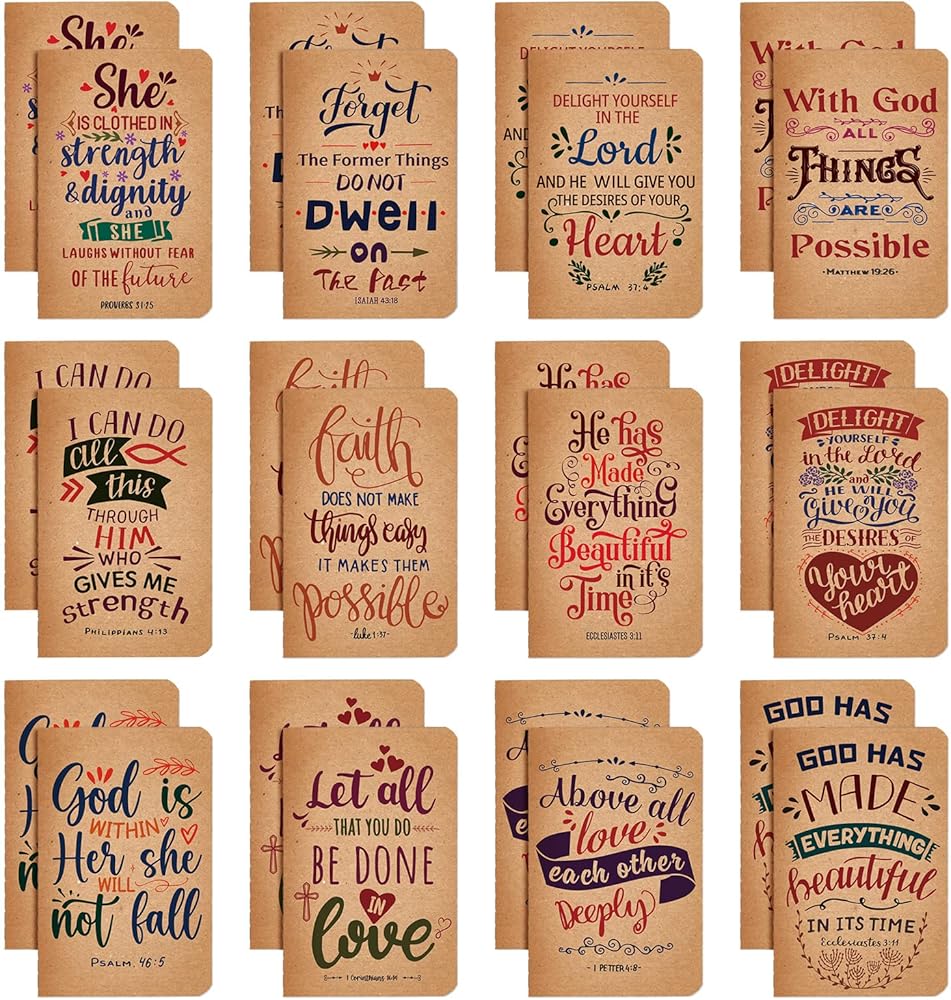 She
She
IS CLOTHED IN
strength
& dignity
and
SHE
LAUGHS WITHOUT FEAR
OF THE future
PROVERBS 31:25
Forget
The Former Things
DO NOT
Dwell
on
The Past
ISAIAH 43:18
DELIGHT YOURSELF
DELIGHT YOURSELF
IN THE
Lord
AND HE WILL GIVE YOU
THE DESIRES OF YOUR
Heart
PSALM 37:4
With God
With God
ALL
THINGS
ARE
Possible
·MATTHEW 19:26·
I CAN DO
I CAN DO
all
this
THROUGH
HIM
WHO
GIVES ME
strength
PHILIPPIANS 4:13
faith
faith
DOES NOT MAKE
things easy
IT MAKES THEM
possible
-luke 1:37-
He has
He has
Made
Everything
Beautiful
in it's
Time
ECCLESIASTES 3:11
DELIGHT
DELIGHT
YOURSELF
in the Lord
and
HE WILL
Give You
THE DESIRES OF
Your
heart
PSALM 37:4
God is
WITHIN
Her she
WILL
not fall
PSALM. 46:5
Let all
THAT YOU DO
BE DONE
IN
love
1 Corinthians 16:14
Above all
love
each other
Deeply
- 1 PETTER 4:8-
GOD HAS
GOD HAS
MADE
EVERYTHING
beautiful
IN ITS TIME
Ecclesiastes 3:11